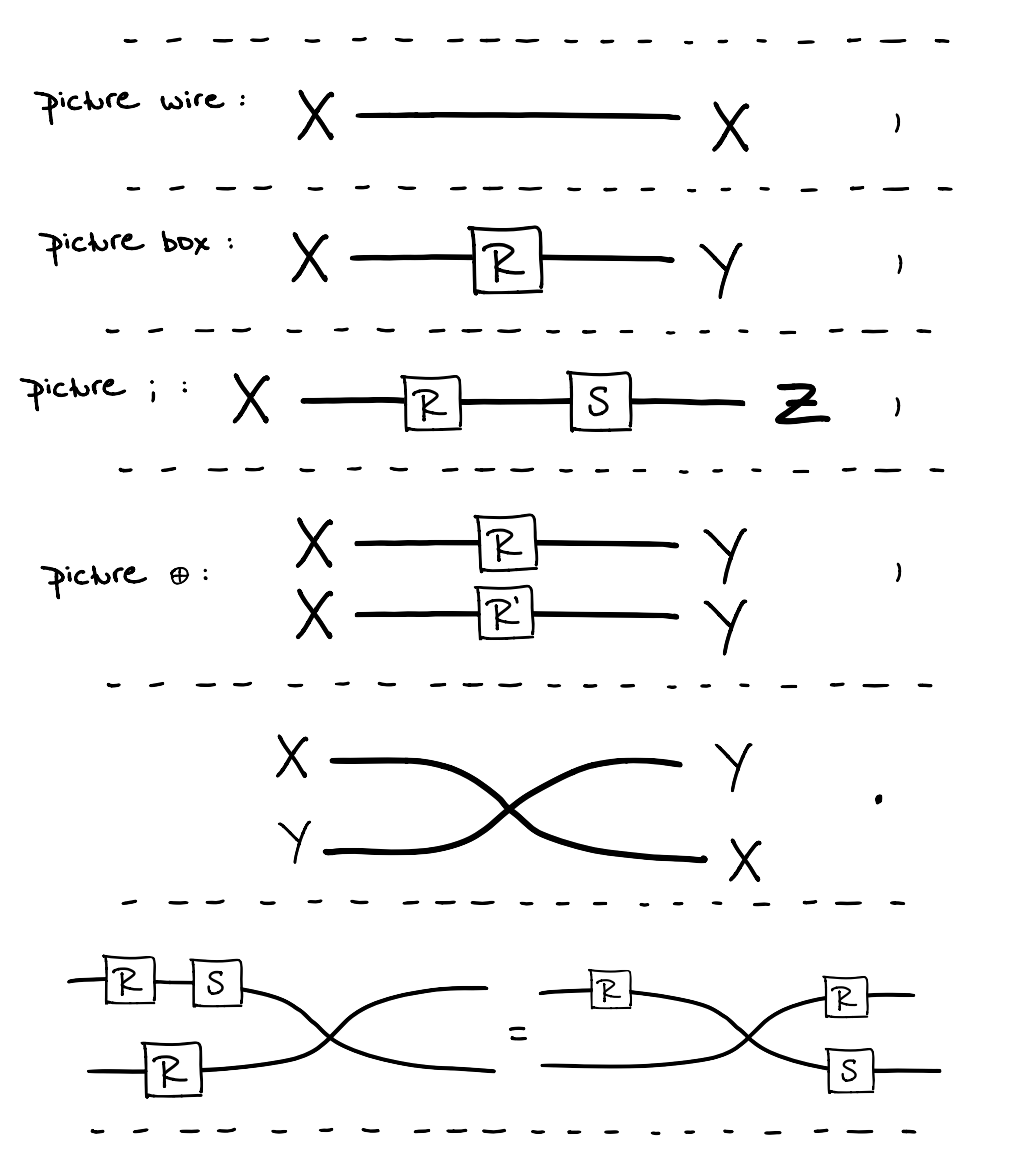 picture wire : X X ,
picture box : X R Y ,
picture ; : X R S Z ,
X R Y
picture ⊕ : ,
X R' Y
X Y
.
Y X
R S R R
=
R S